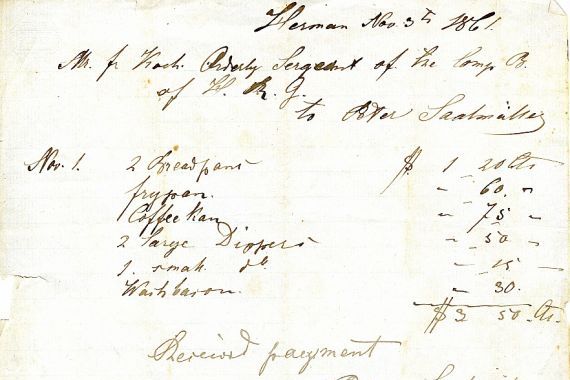 Herman Nov. 3th 1861.
Mr. fr Koch Orderly Sergeant of the Comp B.
of H. R. G.
to Peter
Nov. 1. 2 Breadpans $ 1 20 Cts
frypan. " 60. "
Coffee Kan " 75 "
2 Large Dippers " 50 "
1. small do. " 15 "
Washbason. " 30.
$ 3 50. Cts.
Received payment